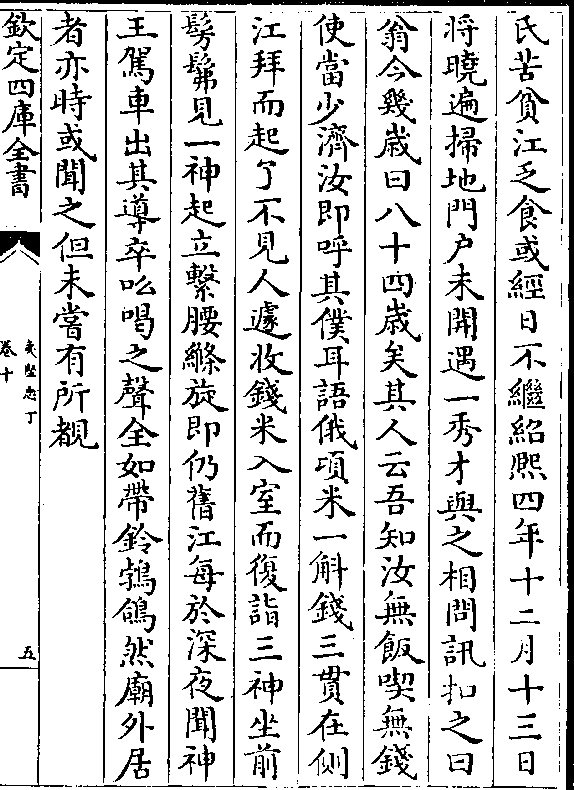 民苦貧江乏食或經日不繼紹熙四年十二月十三日
將曉遍掃地門户未開遇一秀才與之相問訊扣之曰
翁今幾歲曰八十四歲矣其人云吾知汝無飯喫無錢
使當少濟汝即呼其僕耳語俄頃米一斛錢三貫在側
江拜而起了不見人遽收錢米入室而復詣三神坐前
髣髴見一神起立繫腰絛旋即仍舊江每於深夜聞神
王駕車出其導卒吆喝之聲全如帶鈴鵓鴿然廟外居
者亦時或聞之但未嘗有所覩
欽定四庫全書
夷堅志丁
卷十
五